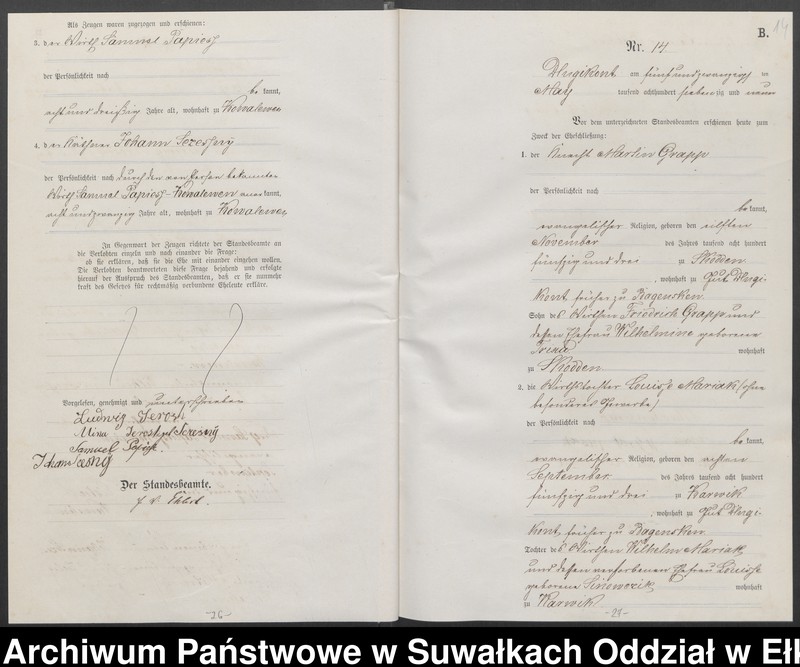 Als Zeugen waren zugezogen und erschienen:
3. der Wirth Samuel Papiess
der Persönlichkeit nach
be kannt,
acht und dreißig Jahre alt, wohnhaft zu Kowalewen
4. der Käthner Johann Szessny
der Persönlichkeit nach durch den von Person bekannten
Wirth Samuel Papiess-Kowalewen aner kannt,
acht und zwanzig Jahre alt, wohnhaft zu Kowalewen
In Gegenwart der Zeugen richtete der Standesbeamte an
die Verlobten einzeln und nach einander die Frage:
ob sie erklären, daß sie die Ehe mit einander eingehen wollen.
Die Verlobten beantworteten diese Frage bejahend und erfolgte
hierauf der Ausspruch des Standesbeamten, daß er sie nunmehr
kraft des Gesetzes für rechtmäßig verbundene Eheleute erkläre.
Vorgelesen, genehmigt und unterschrieben
Ludwig Jerosch
Mina Jerosch
Samuel
Johann
Der Standesbeamte.
-26-
B.
14
Nr. 14
Dlugikont am fünf und zwanzigsten
May tausend achthundert sieben zig und neun
Vor dem unterzeichneten Standesbeamten erschienen heute zum
Zweck der Eheschließung:
1. der Knecht Martin Grapp
der Persönlichkeit nach
be kannt,
evangelischer Religion, geboren den eilften
November des Jahres tausend acht hundert
fünfzig und drei zu Skodden
, wohnhaft zu Gut Dlugi-
kont, früher zu Ragensken
Sohn des Wirthen Friedrich Grapp und
dessen Ehefrau Wilhelmine geborene
wohnhaft
zu Skodden
2. die Wirthstochter Louise Mariak (ohne
besonderes Gewerbe)
der Persönlichkeit nach
be kannt,
evangelischer Religion, geboren den achten
September des Jahres tausend acht hundert
fünfzig und drei zu Karwik
, wohnhaft zu Gut Dlugi-
kont, früher zu Ragensken
Tochter des Wirthen Wilhelm Mariak
und dessen verstorbenen Ehefrau Louise
geborene Sinowczik wohnhaft
zu Karwik
Archiwum Państwowe w Suwałkach Oddział w Eł